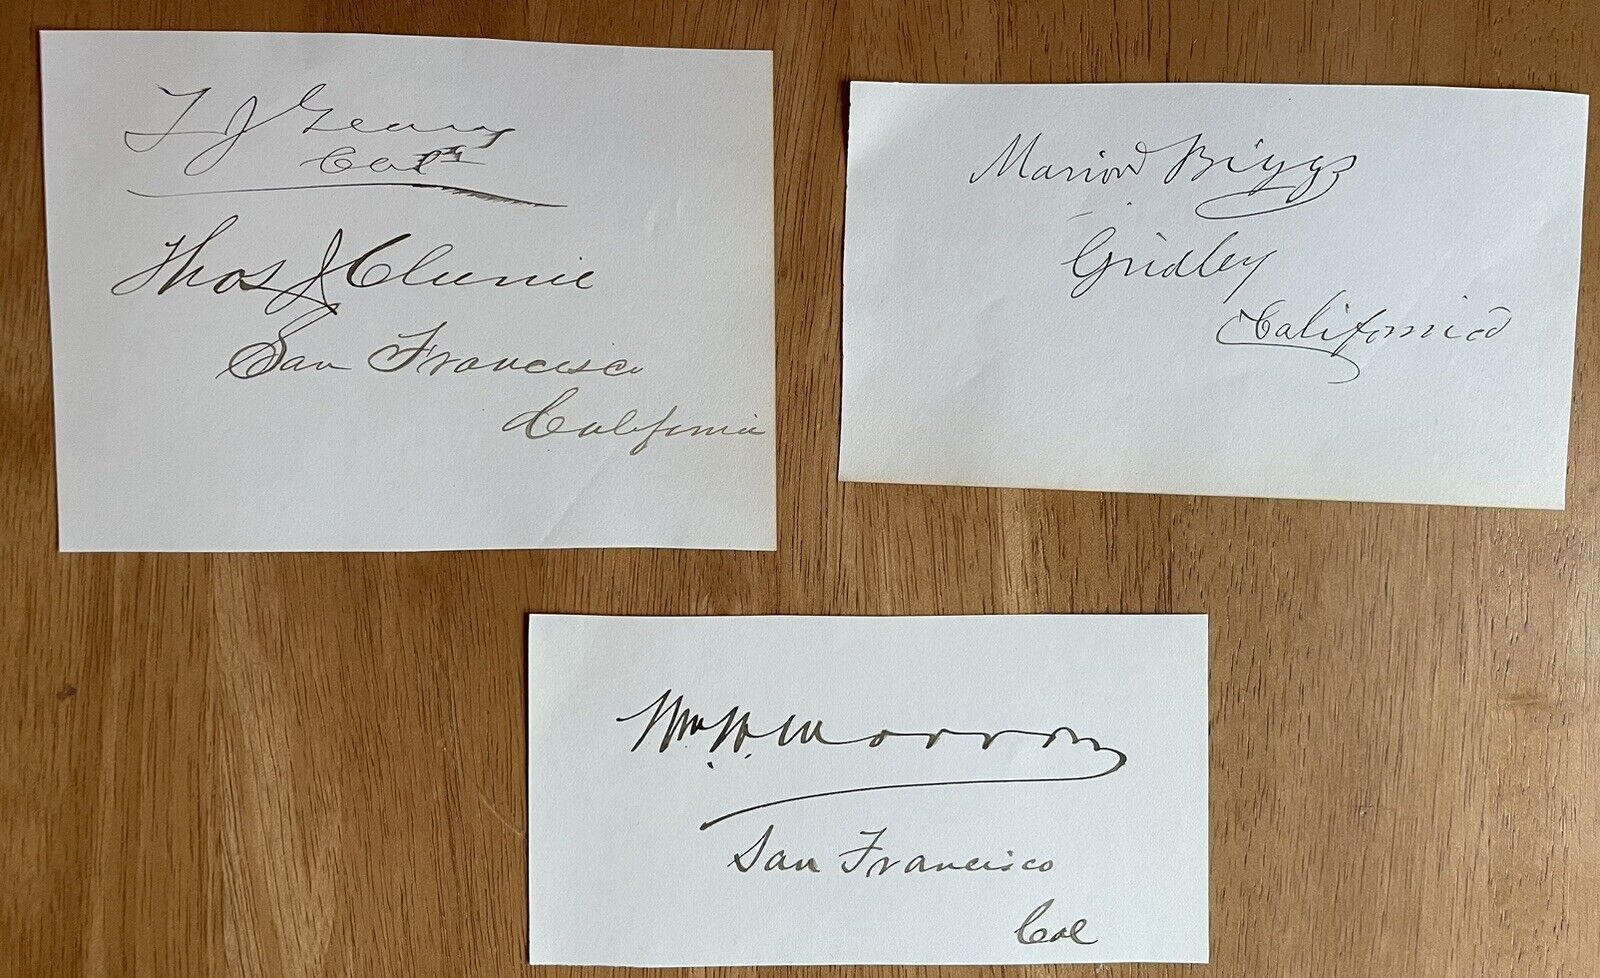 T J Geary
Cal
Thos J Clunie
San Francisco
California
Marion Biggs
Gridley
California
Wm. W. Morrow
San Francisco
Cal